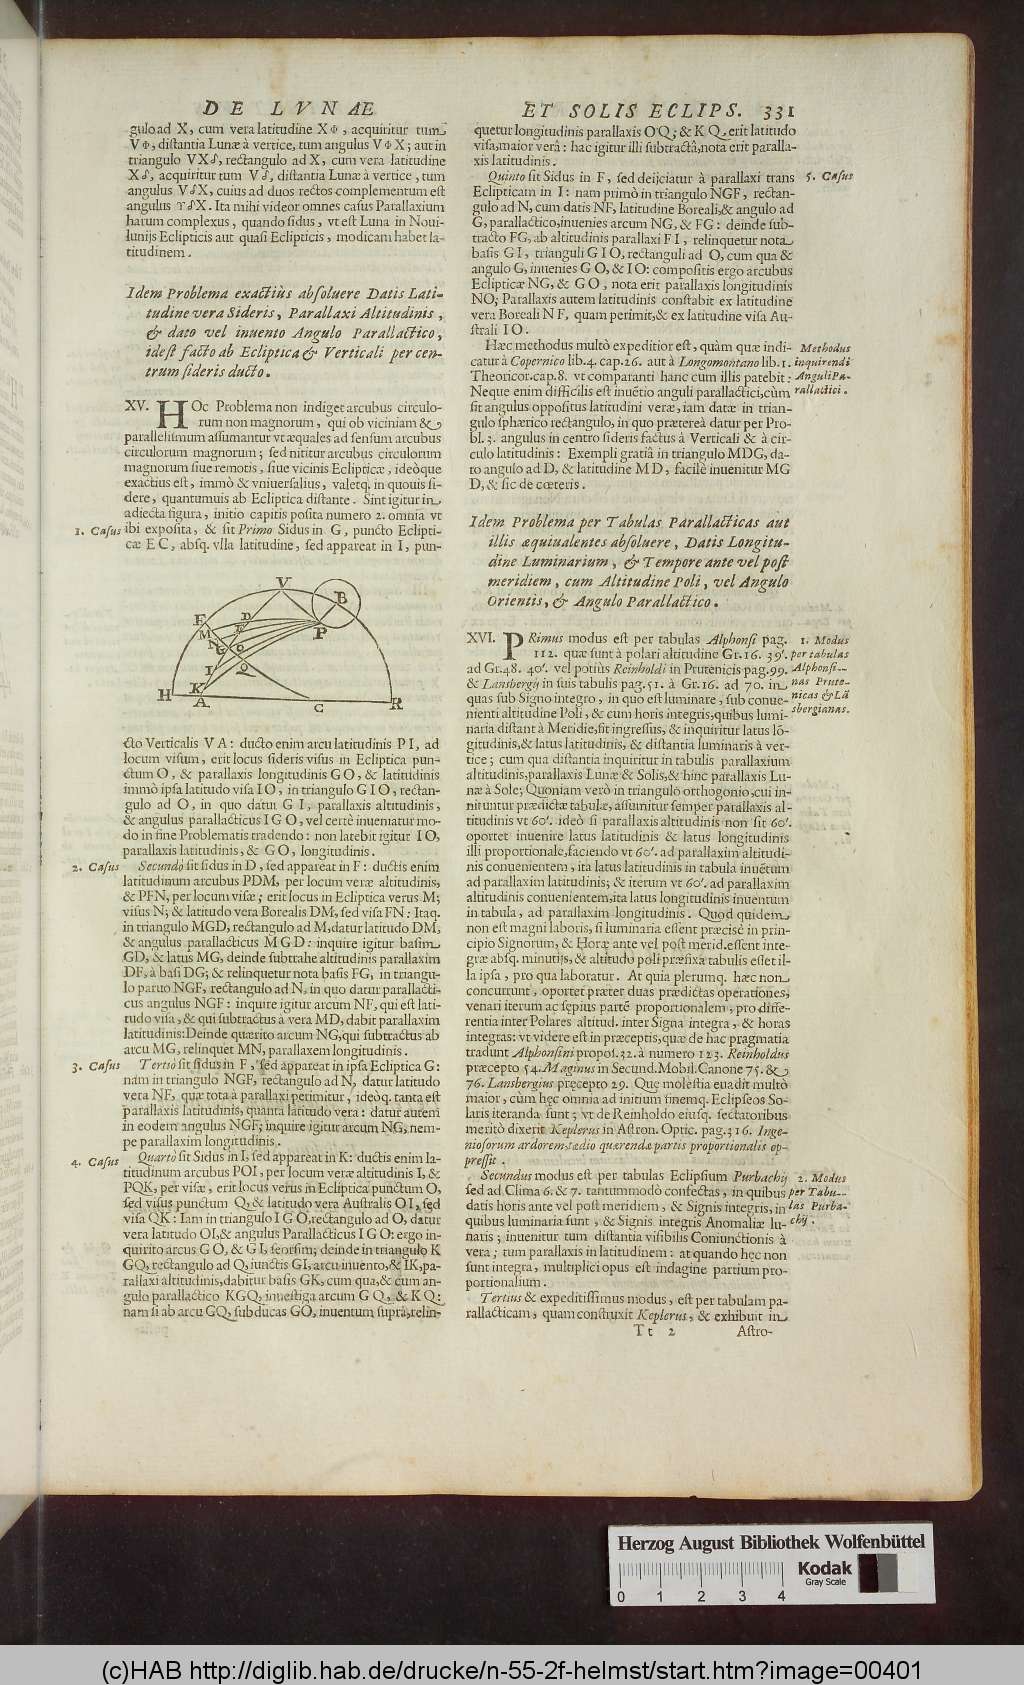 DE LVNAE
gulo ad X, cum vera latitudine XΦ, acquiritur tum
VΦ, distantia Lunæ à vertice, tum angulus VΦX; aut in
triangulo VX☊, rectangulo ad X, cum vera latitudine
X☊, acquiritur tum V☊, distantia Lunæ à vertice, tum
angulus V☊X, cuius ad duos rectos complementum est
angulus ♈☊X. Ita mihi videor omnes casus Parallaxium
harum complexus, quando sidus, vt est Luna in Noui-
lunijs Eclipticis aut quasi Eclipticis, modicam habet la-
titudinem.
Idem Problema exactiùs absoluere Datis Lati-
tudine vera Sideris, Parallaxi Altitudinis,
& dato vel inuento Angulo Parallactico,
idest facto ab Ecliptica & Verticali per cen-
trum sideris ducto.
XV. HOc Problema non indiget arcubus circulo-
rum non magnorum, qui ob viciniam &
parallelismum assumantur vt æquales ad sensum arcubus
circulorum magnorum; sed nititur arcubus circulorum
magnorum siue remotis, siue vicinis Eclipticæ, ideòque
exactius est, immò & vniuersalius, valetq. in quouis si-
dere, quantumuis ab Ecliptica distante. Sint igitur in
adiecta figura, initio capitis posita numero 2. omnia vt
1. Casus ibi exposita, & sit Primo Sidus in G, puncto Eclipti-
cæ EC, absq. vlla latitudine, sed appareat in I, pun-
V
B
E
D
F
P
M
N
G
O
I
Q
K
H
A
C
R
cto Verticalis VA: ducto enim arcu latitudinis PI, ad
locum visum, erit locus sideris visus in Ecliptica pun-
ctum O, & parallaxis longitudinis GO, & latitudinis
immò ipsa latitudo visa IO, in triangulo GIO, rectan-
gulo ad O, in quo datur GI, parallaxis altitudinis,
& angulus parallacticus IGO, vel certè inueniatur mo-
do in fine Problematis tradendo: non latebit igitur IO,
parallaxis latitudinis, & GO, longitudinis.
2. Casus Secundò sit sidus in D, sed appareat in F: ductis enim
latitudinum arcubus PDM, per locum veræ altitudinis,
& PFN, per locum visæ; erit locus in Ecliptica verus M;
visus N; & latitudo vera Borealis DM, sed visa FN: Itaq.
in triangulo MGD, rectangulo ad M, datur latitudo DM,
& angulus parallacticus MGD: inquire igitur basim
GD, & latus MG, deinde subtrahe altitudinis parallaxim
DF, à basi DG; & relinquetur nota basis FG, in triangu-
lo paruo NGF, rectangulo ad N, in quo datur parallacti-
cus angulus NGF: inquire igitur arcum NF, qui est lati-
tudo visa, & qui subtractus à vera MD, dabit parallaxim
latitudinis: Deinde quærito arcum NG, qui subtractus ab
arcu MG, relinquet MN, parallaxem longitudinis.
3. Casus Tertiò sit sidus in F, sed appareat in ipsa Ecliptica G:
nam in triangulo NGF, rectangulo ad N, datur latitudo
vera NF, quæ tota à parallaxi perimitur, ideòq. tanta est
parallaxis latitudinis, quanta latitudo vera: datur autem
in eodem angulus NGF; inquire igitur arcum NG, nem-
pe parallaxim longitudinis.
4. Casus Quartò sit Sidus in I, sed appareat in K: ductis enim la-
titudinum arcubus POI, per locum veræ altitudinis I, &
PQK, per visæ, erit locus verus in Ecliptica punctum O,
sed visus punctum Q, & latitudo vera Australis OI, sed
visa QK: Iam in triangulo IGO, rectangulo ad O, datur
vera latitudo OI, & angulus Parallacticus IGO: ergo in-
quirito arcus GO, & GI, seorsim; deinde in triangulo K
GQ, rectangulo ad Q, iunctis GI, arcu inuento, & IK, pa-
rallaxi altitudinis, dabitur basis GK, cum qua, & cum an-
gulo parallactico KGQ, inuestiga arcum GQ, & KQ:
nam si ab arcu GQ, subducas GO, inuentum suprà, relin-
ET SOLIS ECLIPS. 331
quetur longitudinis parallaxis OQ; & KQ, erit latitudo
visa, maior verâ: hac igitur illi subtractâ, nota erit paralla-
xis latitudinis.
Quinto sit Sidus in F, sed deijciatur à parallaxi trans 5. Casus
Eclipticam in I: nam primò in triangulo NGF, rectan-
gulo ad N, cum datis NF, latitudine Boreali, & angulo ad
G, parallactico, inuenies arcum NG, & FG: deinde sub-
tracto FG, ab altitudinis parallaxi FI, relinquetur nota
basis GI, trianguli GIO, rectanguli ad O, cum qua &
angulo G, inuenies GO, & IO: compositis ergo arcubus
Eclipticæ NG, & GO, nota erit parallaxis longitudinis
NO; Parallaxis autem latitudinis constabit ex latitudine
vera Boreali NF, quam perimit, & ex latitudine visa Au-
strali IO.
Hæc methodus multò expeditior est, quàm quæ indi-
catur à Copernico lib. 4. cap. 26. aut à Longomontano lib. 1.
Theoricor. cap. 8. vt comparanti hanc cum illis patebit:
Neque enim difficilis est inuẽtio anguli parallactici, cùm
sit angulus oppositus latitudini veræ, iam datæ in trian-
gulo sphærico rectangulo, in quo præterea datur per Pro-
bl. 3. angulus in centro sideris factus à Verticali & à cir-
culo latitudinis: Exempli gratiâ in triangulo MDG, da-
to angulo ad D, & latitudine MD, facilè inuenitur MG
D, & sic de cœteris.
Methodus
inquirendi
Anguli Pa-
rallactici.
Idem Problema per Tabulas Parallacticas aut
illis æquiualentes absoluere, Datis Longitu-
dine Luminarium, & Tempore ante vel post
meridiem, cum Altitudine Poli, vel Angulo
Orientis, & Angulo Parallactico.
XVI. PRimus modus est per tabulas Alphonsi pag.
112. quæ sunt à polari altitudine Gr. 16. 39'.
ad Gr. 48. 40'. vel potiùs Reinholdi in Prutenicis pag. 99.
& Lansbergij in suis tabulis pag. 51. à Gr. 16. ad 70. in
quas sub Signo integro, in quo est luminare, sub conue-
nienti altitudine Poli, & cum horis integris, quibus lumi-
naria distant à Meridie, fit ingressus, & inquiritur latus lõ-
gitudinis, & latus latitudinis, & distantia luminaris à ver-
tice; cum qua distantia inquiritur in tabulis parallaxium
altitudinis, parallaxis Lunæ & Solis, & hinc parallaxis Lu-
næ à Sole; Quoniam verò in triangulo orthogonio, cui in-
nituntur prædictæ tabulæ, assumitur semper parallaxis al-
titudinis vt 60'. ideò si parallaxis altitudinis non sit 60'.
oportet inuenire latus latitudinis & latus longitudinis
illi proportionale, faciendo vt 60'. ad parallaxim altitudi-
nis conuenientem, ita latus latitudinis in tabula inuẽtum
ad parallaxim latitudinis; & iterum vt 60'. ad parallaxim
altitudinis conuenientem, ita latus longitudinis inuentum
in tabula, ad parallaxim longitudinis. Quod quidem
non est magni laboris, si luminaria essent præcisè in prin-
cipio Signorum, & Horæ ante vel post merid. essent inte-
græ absq. minutijs, & altitudo poli præfixa tabulis esset il-
la ipsa, pro qua laboratur. At quia plerumq. hæc non
concurrunt, oportet præter duas prædictas operationes,
venari iterum ac sępius partẽ proportionalem, pro diffe-
rentia inter Polares altitud. inter Signa integra, & horas
integras: vt videre est in præceptis, quæ de hac pragmatia
tradunt Alphonsini propos. 32. à numero 123. Reinholdus
præcepto 54. Maginus in Secund. Mobil. Canone 75. &
76. Lansbergius pręcepto 29. Quę molestia euadit multò
maior, cùm hęc omnia ad initium finemq. Eclipseos So-
laris iteranda sunt; vt de Reinholdo eiusq. sectatoribus
meritò dixerit Keplerus in Astron. Optic. pag. 316. Inge-
niosorum ardorem tædio quærenda partis proportionalis op-
pressit.
1. Modus
per tabulas
Alphonsi-
nas Prute-
nicas & Lã
sbergianas.
Secundus modus est per tabulas Eclipsium Purbachij
sed ad Clima 6. & 7. tantummodò confectas, in quibus
datis horis ante vel post meridiem, & Signis integris, in
quibus luminaria sunt, & Signis integris Anomaliæ lu-
naris; inuenitur tum distantia visibilis Coniunctionis à
vera; tum parallaxis in latitudinem: at quando hęc non
sunt integra, multiplici opus est indagine partium pro-
portionalium.
2. Modus
per Tabu-
las Purba-
chij.
Tertius & expeditissimus modus, est per tabulam pa-
rallacticam, quam construxit Keplerus, & exhibuit in
Tt 2 Astro-
Herzog August Bibliothek Wolfenbüttel
Kodak
Gray Scale
0 1 2 3 4
(c)HAB http://diglib.hab.de/drucke/n-55-2f-helmst/start.htm?image=00401